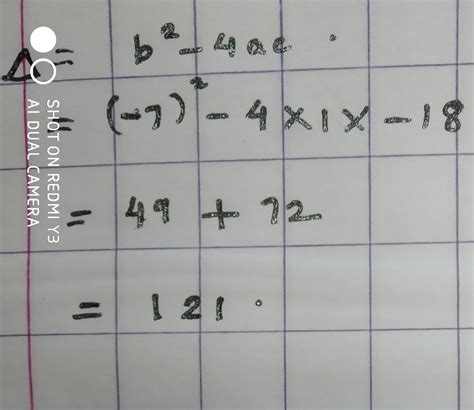 Δ = b² - 4ac.
= (-7)² - 4 × 1 × - 18
= 49 + 72
= 121.
SHOT ON REDMI Y3
AI DUAL CAMERA